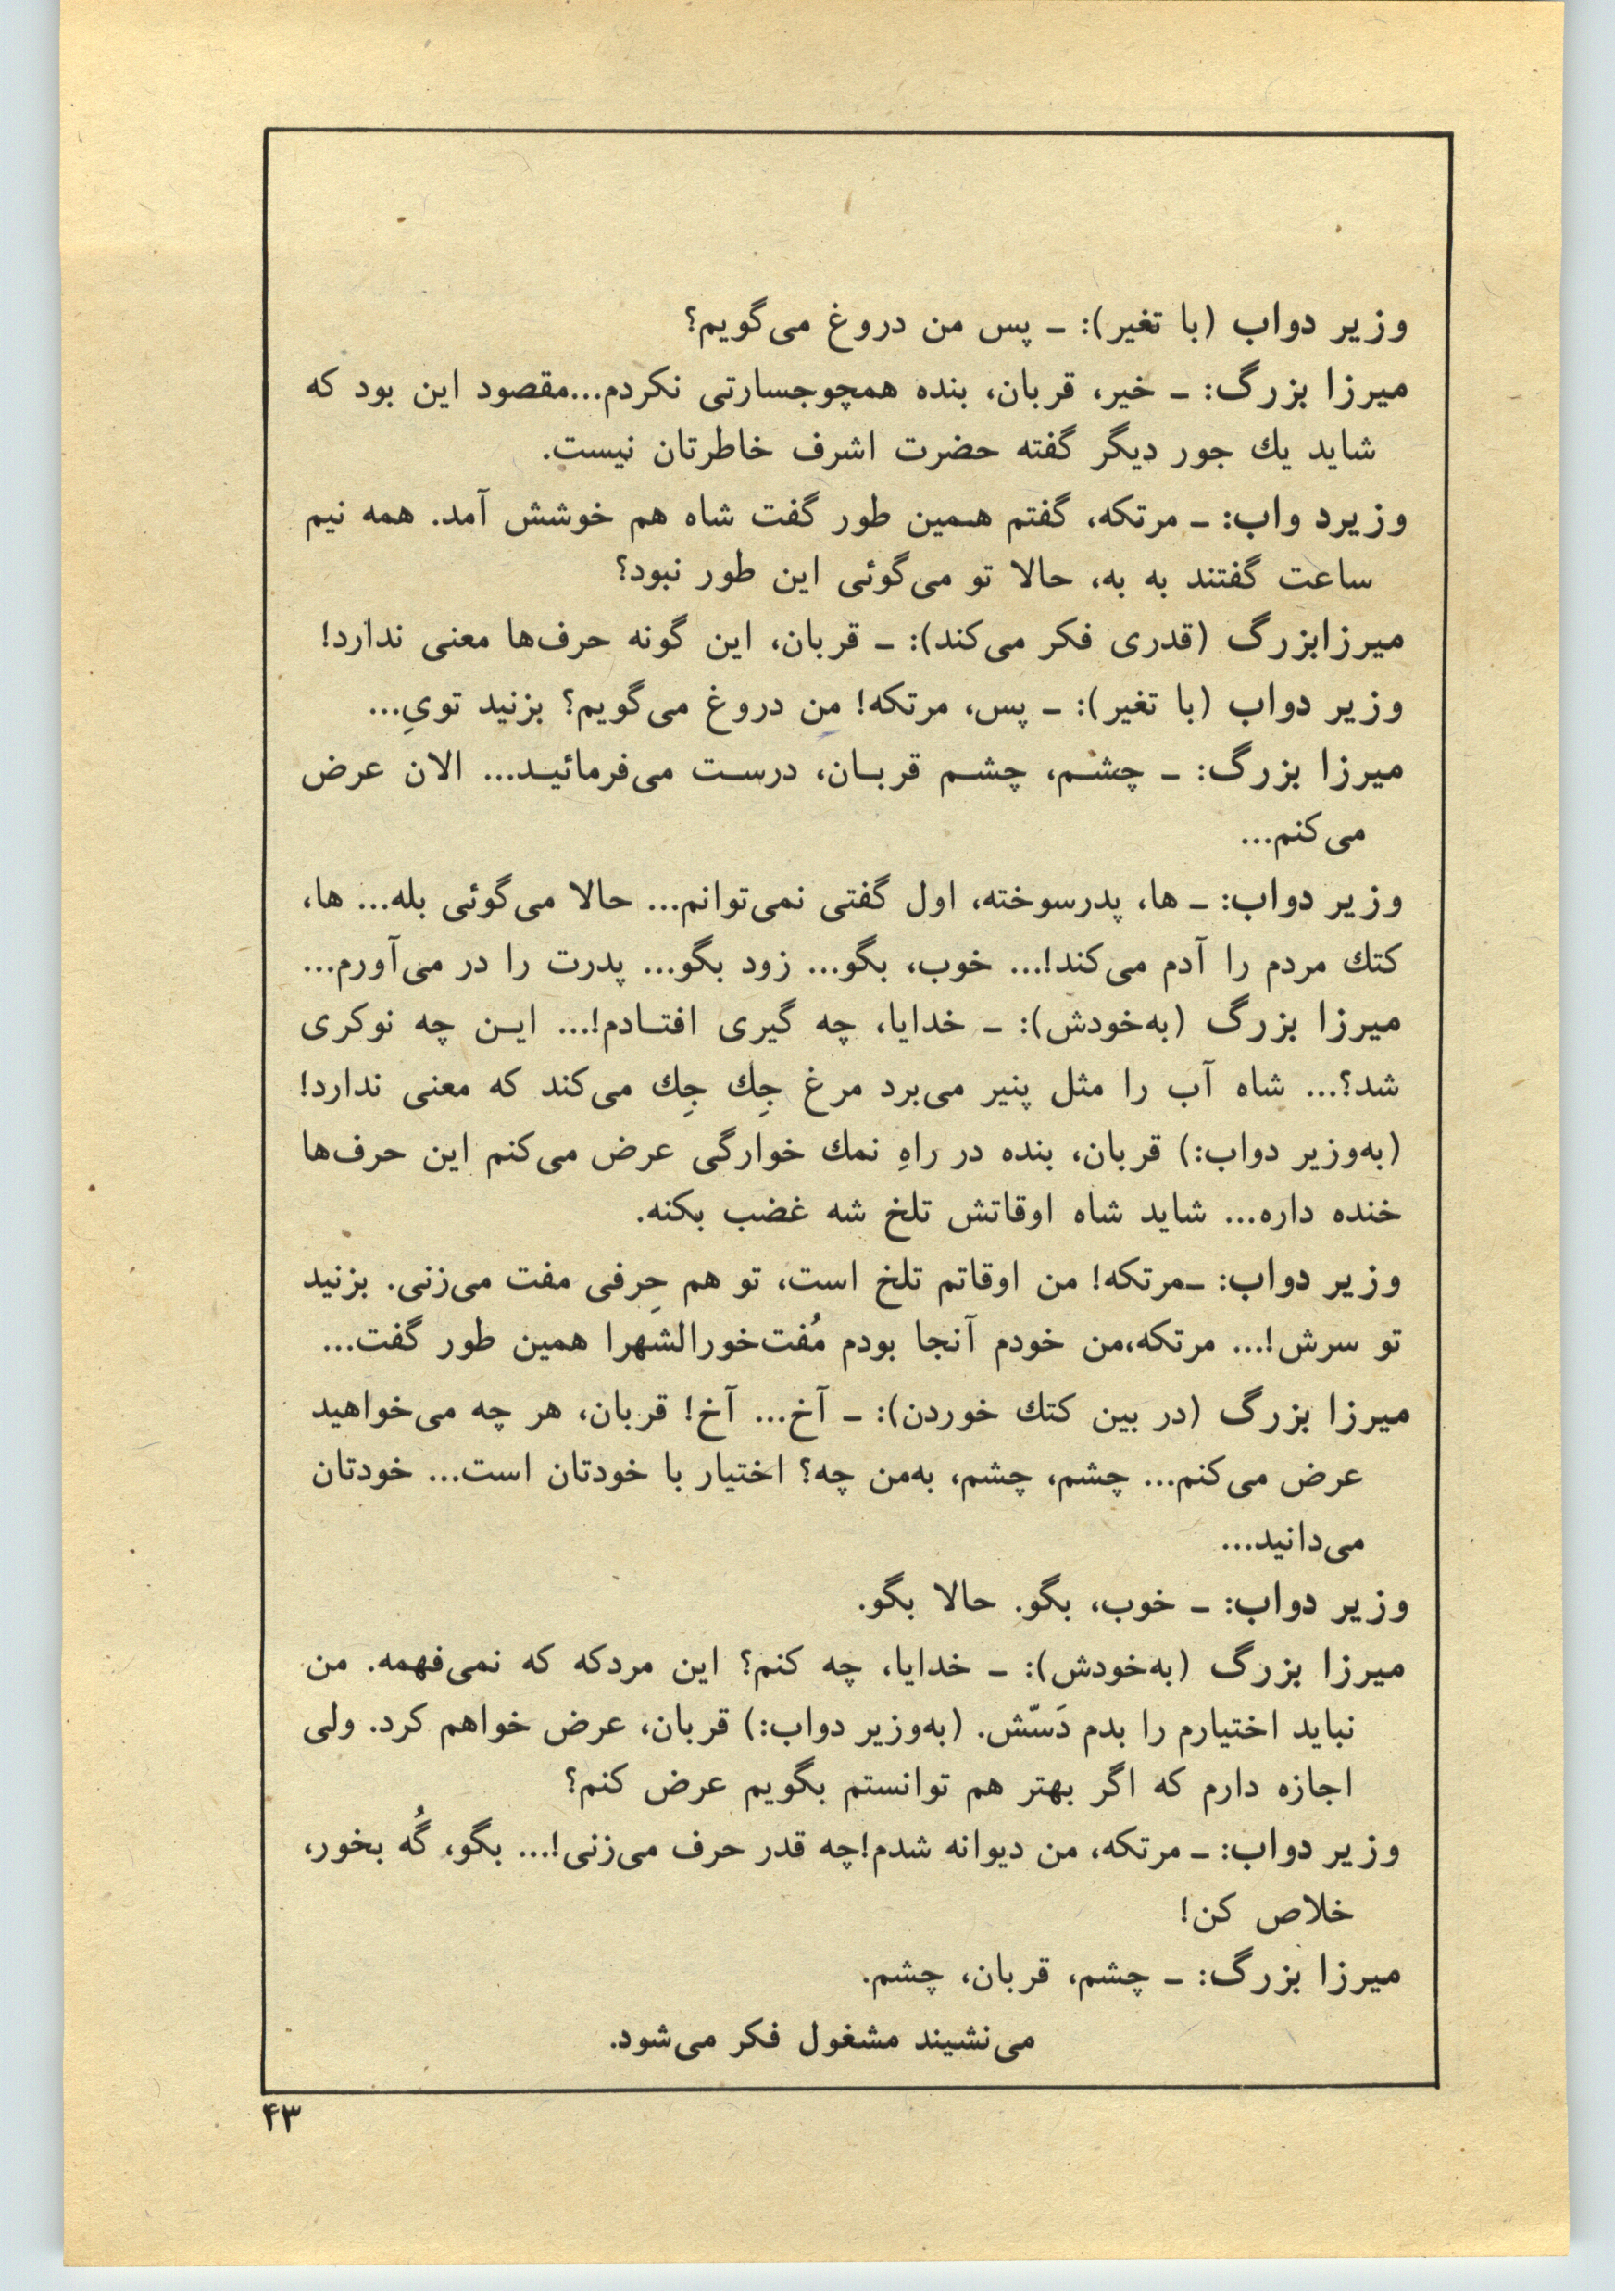 وزیر دواب (با تغیر): ـ پس من دروغ می‌گویم؟
میرزا بزرگ: ـ خیر، قربان، بنده همچوجسارتی نکردم...مقصود این بود که
شاید یك جور دیگر گفته حضرت اشرف خاطرتان نیست.
وزیرد واب: ـ مرتکه، گفتم همین طور گفت شاه هم خوشش آمد. همه نیم
ساعت گفتند به به، حالا تو می‌گوئی این طور نبود؟
میرزابزرگ (قدری فکر می‌کند): ـ قربان، این گونه حرف‌ها معنی ندارد!
وزیر دواب (با تغیر): ـ پس، مرتکه! من دروغ می‌گویم؟ بزنید تویِ...
میرزا بزرگ: ـ چشم، چشم قربان، درست می‌فرمائید... الان عرض
می‌کنم...
وزیر دواب: ـ ها، پدرسوخته، اول گفتی نمی‌توانم... حالا می‌گوئی بله... ها،
کتك مردم را آدم می‌کند!... خوب، بگو... زود بگو... پدرت را در می‌آورم...
میرزا بزرگ (به‌خودش): ـ خدایا، چه گیری افتادم!... این چه نوکری
شد؟... شاه آب را مثل پنیر می‌برد مرغ جِك جِك می‌کند که معنی ندارد!
(به‌وزیر دواب:) قربان، بنده در راهِ نمك خوارگی عرض می‌کنم این حرف‌ها
خنده داره... شاید شاه اوقاتش تلخ شه غضب بکنه.
وزیر دواب: ـمرتکه! من اوقاتم تلخ است، تو هم حِرفی مفت می‌زنی. بزنید
تو سرش!... مرتکه،من خودم آنجا بودم مُفت‌خورالشهرا همین طور گفت...
میرزا بزرگ (در بین کتك خوردن): ـ آخ... آخ! قربان، هر چه می‌خواهید
عرض می‌کنم... چشم، چشم، به‌من چه؟ اختیار با خودتان است... خودتان
می‌دانید...
وزیر دواب: ـ خوب، بگو. حالا بگو.
میرزا بزرگ (به‌خودش): ـ خدایا، چه کنم؟ این مردکه که نمی‌فهمه. من
نباید اختیارم را بدم دَسّش. (به‌وزیر دواب:) قربان، عرض خواهم کرد. ولی
اجازه دارم که اگر بهتر هم توانستم بگویم عرض کنم؟
وزیر دواب: ـ مرتکه، من دیوانه شدم!چه قدر حرف می‌زنی!... بگو، گُه بخور،
خلاص کن!
میرزا بزرگ: ـ چشم، قربان، چشم.
می‌نشیند مشغول فکر می‌شود.
۴۳